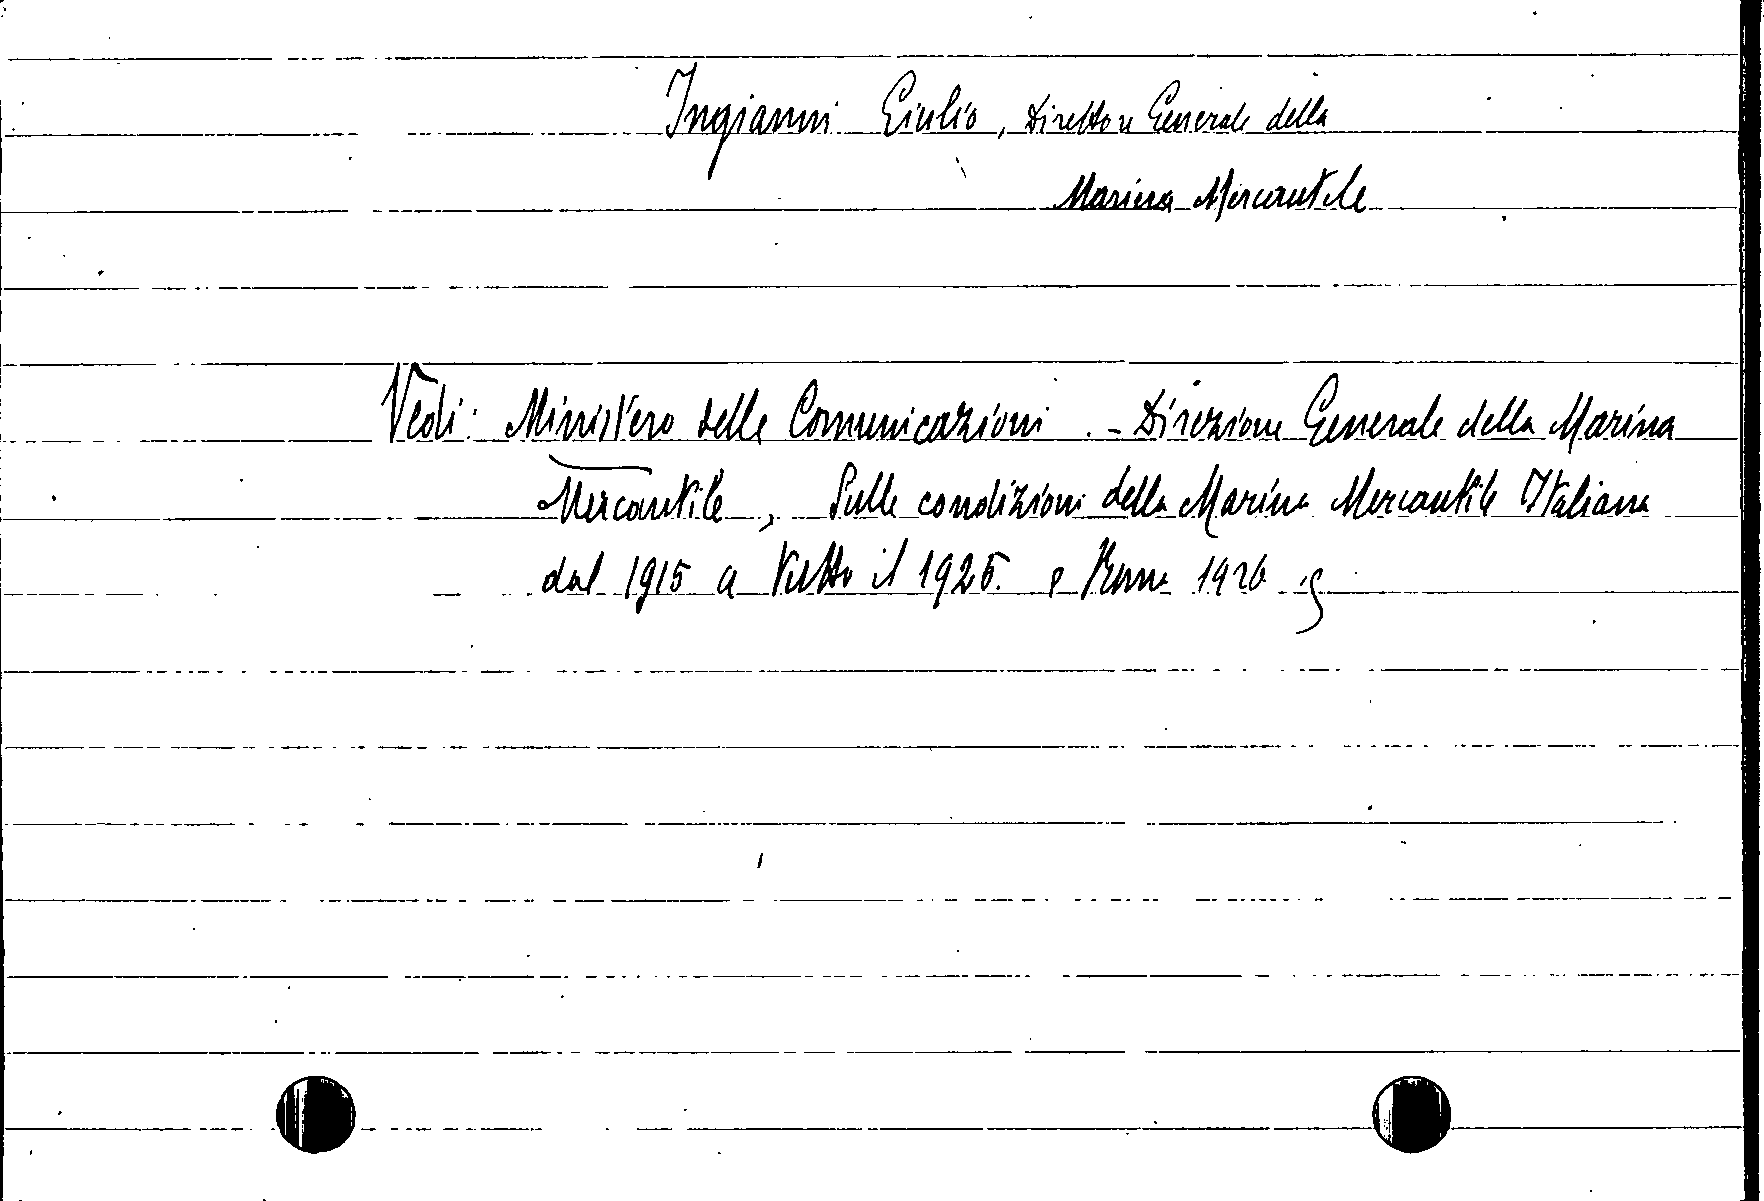 Ingianni Giulio, Direttore Generale della
Marina Mercantile
Vedi: Ministero delle Comunicazioni. - Direzione Generale della Marina
Mercantile, Sulle condizioni della Marina Mercantile Italiana
dal 1915 a tutto il 1925. Roma 1926